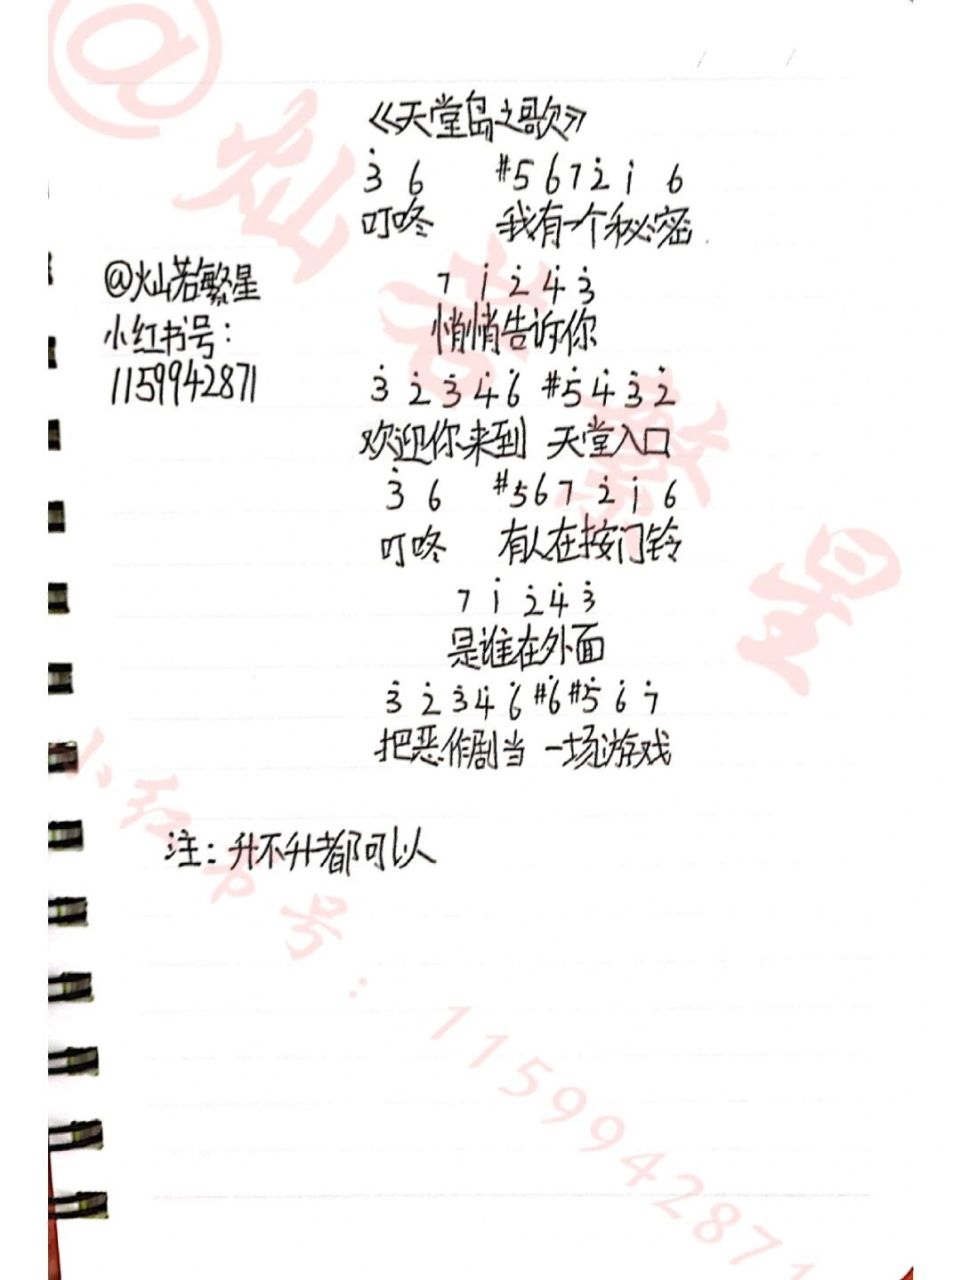 《天堂岛之歌》
3̇ 6 #5 6 7 2̇ 1̇ 6
叮咚 我有一个秘密
7 1̇ 2̇ 4̇ 3̇
悄悄告诉你
@灿若繁星
小红书号:
1159942871
3̇ 2̇ 3̇ 4̇ 6̇ #5̇ 4̇ 3̇ 2̇
欢迎你来到 天堂入口
3̇ 6 #5 6 7 2̇ 1̇ 6
叮咚 有人在按门铃
7 1̇ 2̇ 4̇ 3̇
是谁在外面
3̇ 2̇ 3̇ 4̇ 6̇ #6̇ #5̇ 6̇ 7̇
把恶作剧当 一场游戏
注:升不升都可以
@灿若繁星
小红书号:1159942871